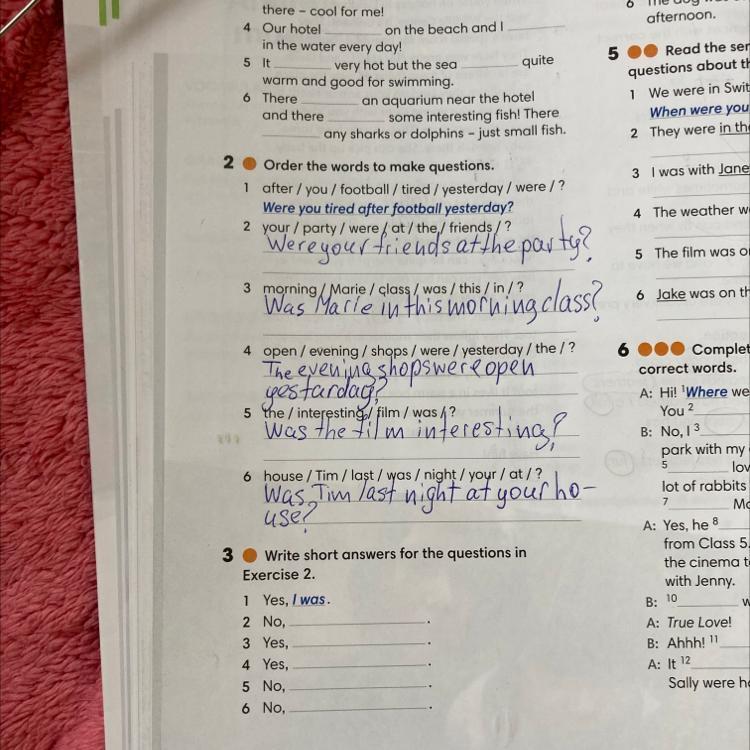 there – cool for me!
4 Our hotel ________ on the beach and I ________
in the water every day!
5 It ________ very hot but the sea ________ quite
warm and good for swimming.
6 There ________ an aquarium near the hotel
and there ________ some interesting fish! There
________ any sharks or dolphins – just small fish.
2 Order the words to make questions.
1 after / you / football / tired / yesterday / were / ?
Were you tired after football yesterday?
2 your / party / were / at / the / friends / ?
Were your friends at the party?
3 morning / Marie / class / was / this / in / ?
Was Marie in this morning class?
4 open / evening / shops / were / yesterday / the / ?
The evening shops were open
yestarday?
5 the / interesting / film / was / ?
Was the film interesting?
6 house / Tim / last / was / night / your / at / ?
Was Tim last night at your ho-
use?
3 Write short answers for the questions in
Exercise 2.
1 Yes, I was.
2 No, ________.
3 Yes, ________.
4 Yes, ________.
5 No, ________.
6 No, ________.
6 The dog was
afternoon.
5 Read the
questions about
1 We were in
When were you
2 They were in the
3 I was with Jane
4 The weather
5 The film was
6 Jake was on
6 Complet
correct words.
A: Hi! ¹Where we
You ²
B: No, I ³
park with my
⁵________ lov
lot of rabbits
⁷________
A: Yes, he ⁸
from Class 5.
the cinema
with Jenny.
B: ¹⁰________
A: True Love!
B: Ahhh! ¹¹
A: It ¹²
Sally were